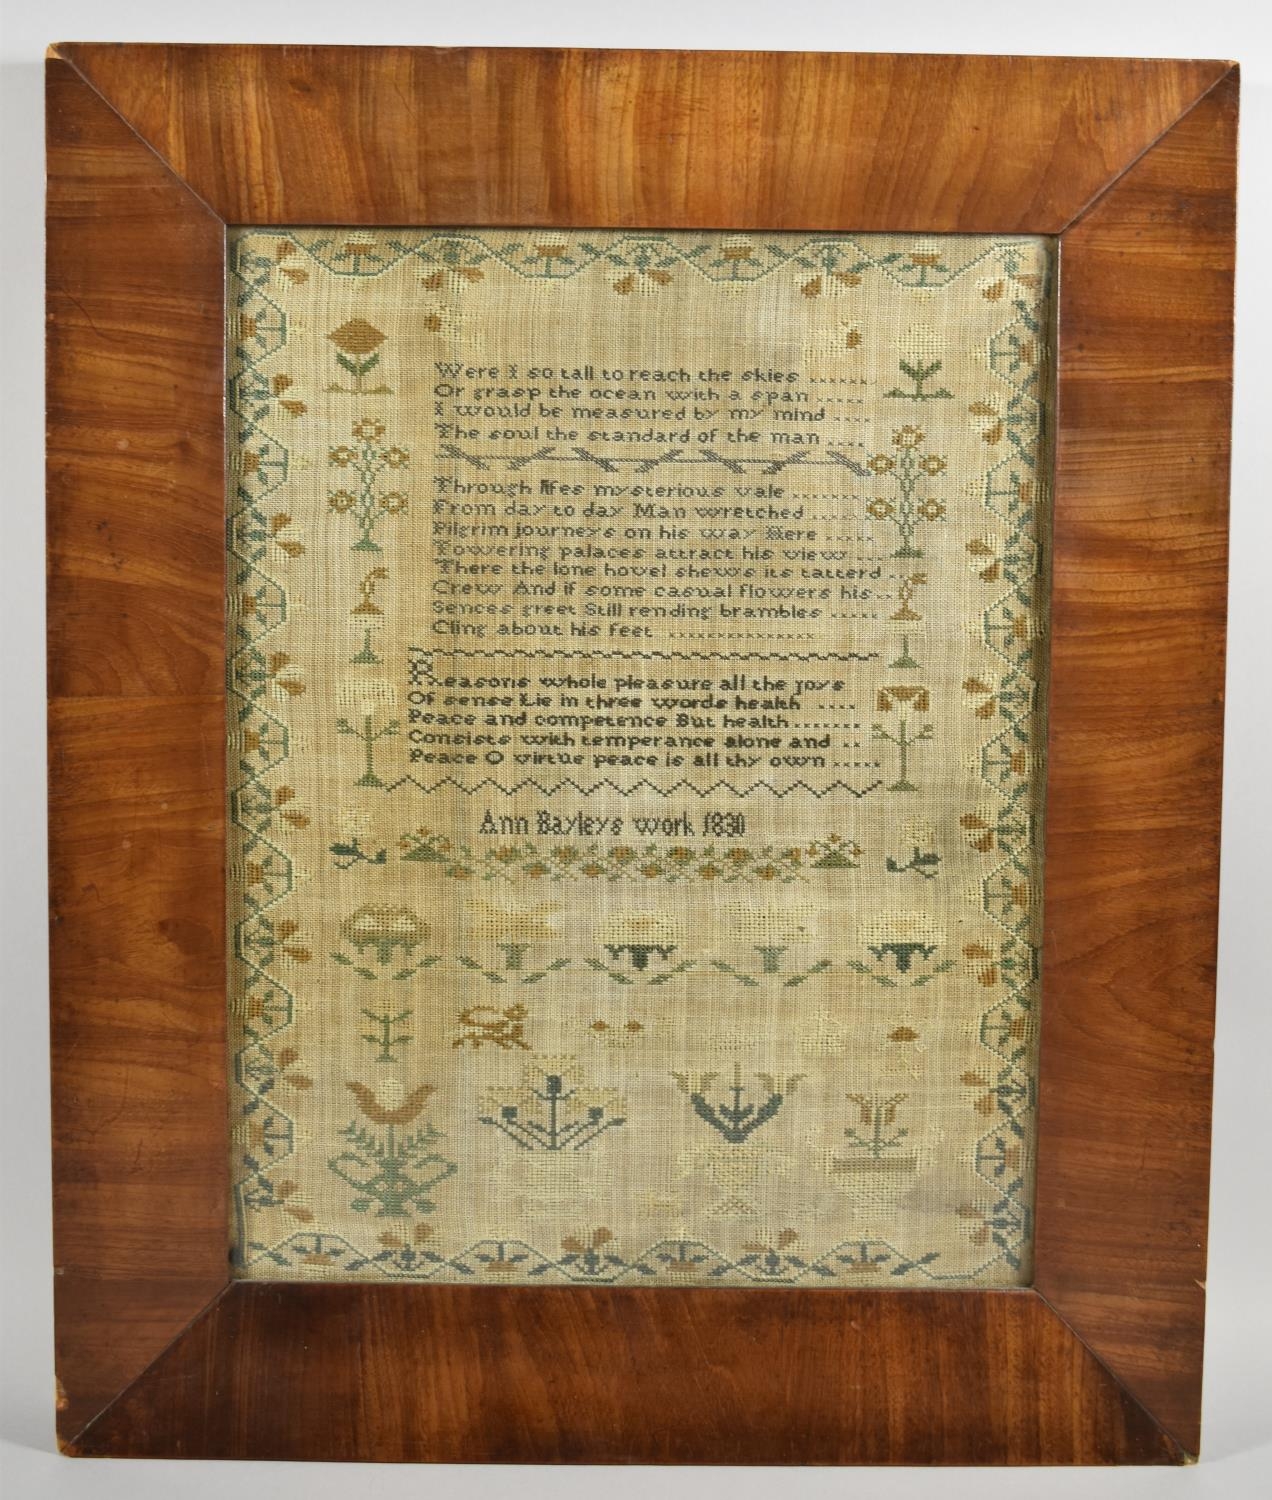 Were I so tall to reach the skies
Or grasp the ocean with a span
I would be measured by my mind
The soul the standard of the man
Through lifes mysterious vale
From day to day Man wretched
Pilgrim journeys on his way Here
Towering palaces attract his view
There the lone hovel shews its tatterd
Crew And if some casual flowers his
Sences greet Still rending brambles
Cling about his feet
Reasons whole pleasure all the joys
Of sense Lie in three words health
Peace and competence But health
Consists with temperance alone and
Peace O virtue peace is all thy own
Ann Bayleys work 1830